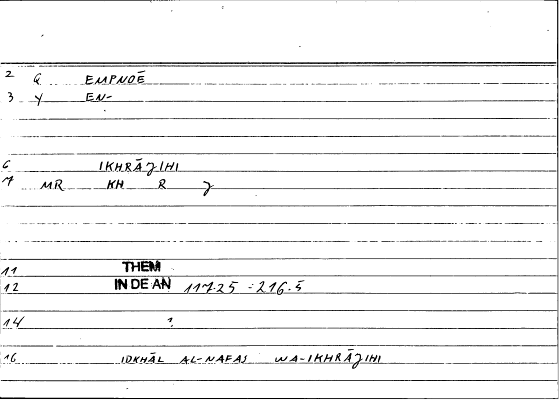 2 G EMPNOĒ
3 Y EN-
6 IKHRĀJIHI
7 MR KH R J
11 THEM
12 IN DE AN 117.25 - 216.5
14 ?
16 IDKHĀL AL-NAFAS WA-IKHRĀJIHI